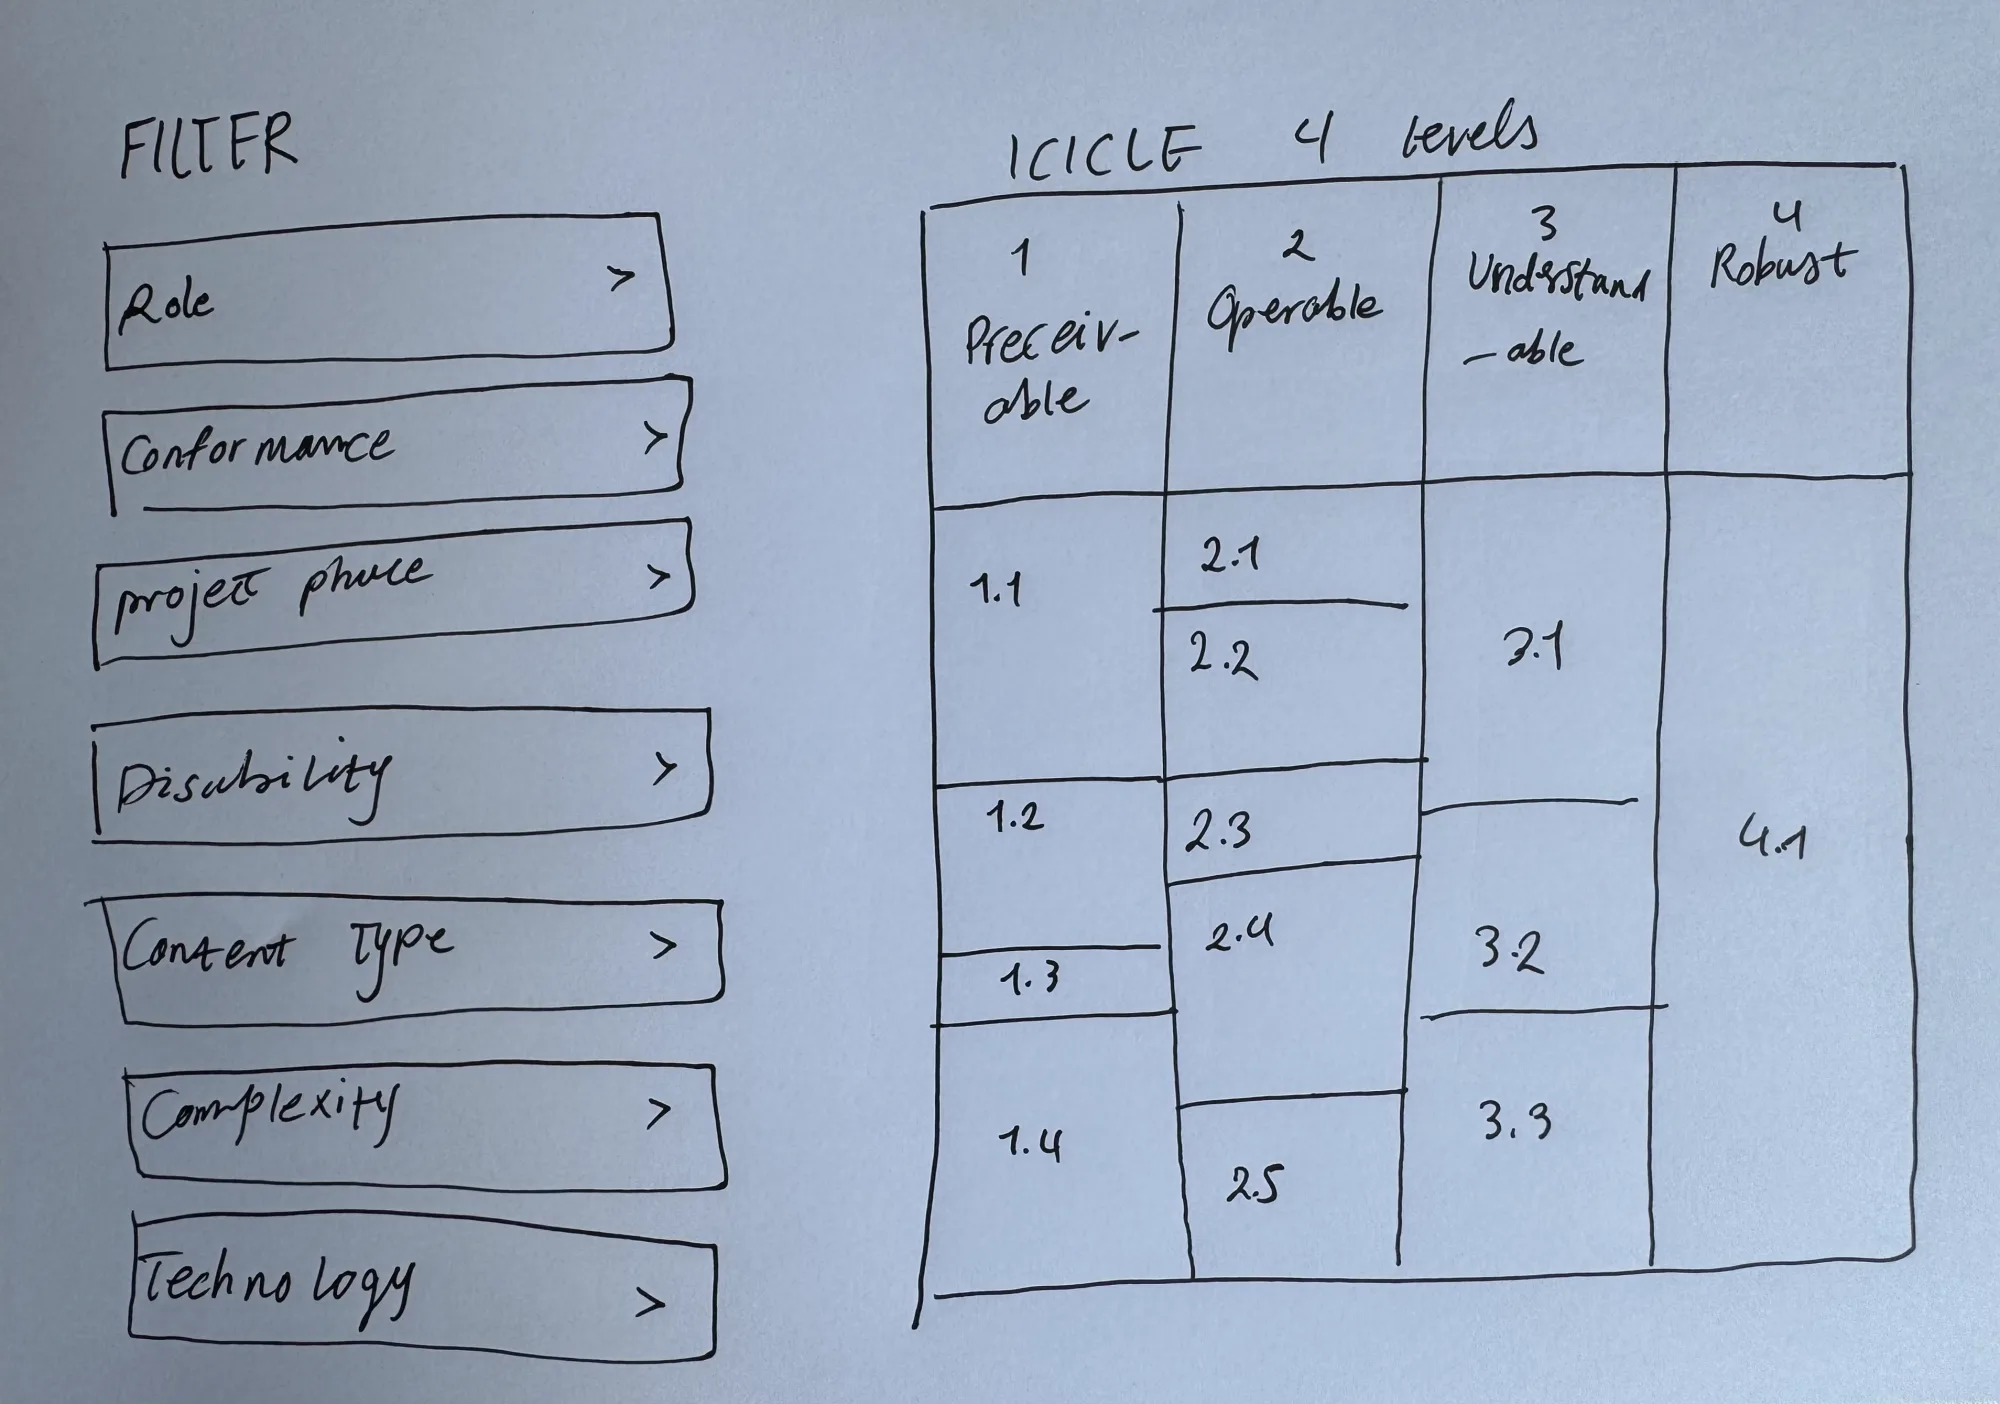 FILTER
Role >
Conformance >
project phace >
Disability >
Content Type >
Complexity >
Technology >
ICICLE 4 levels
1
Preceiv-
able
2
Operable
3
Understand
-able
4
Robust
1.1
1.2
1.3
1.4
2.1
2.2
2.3
2.4
2.5
3.1
3.2
3.3
4.1